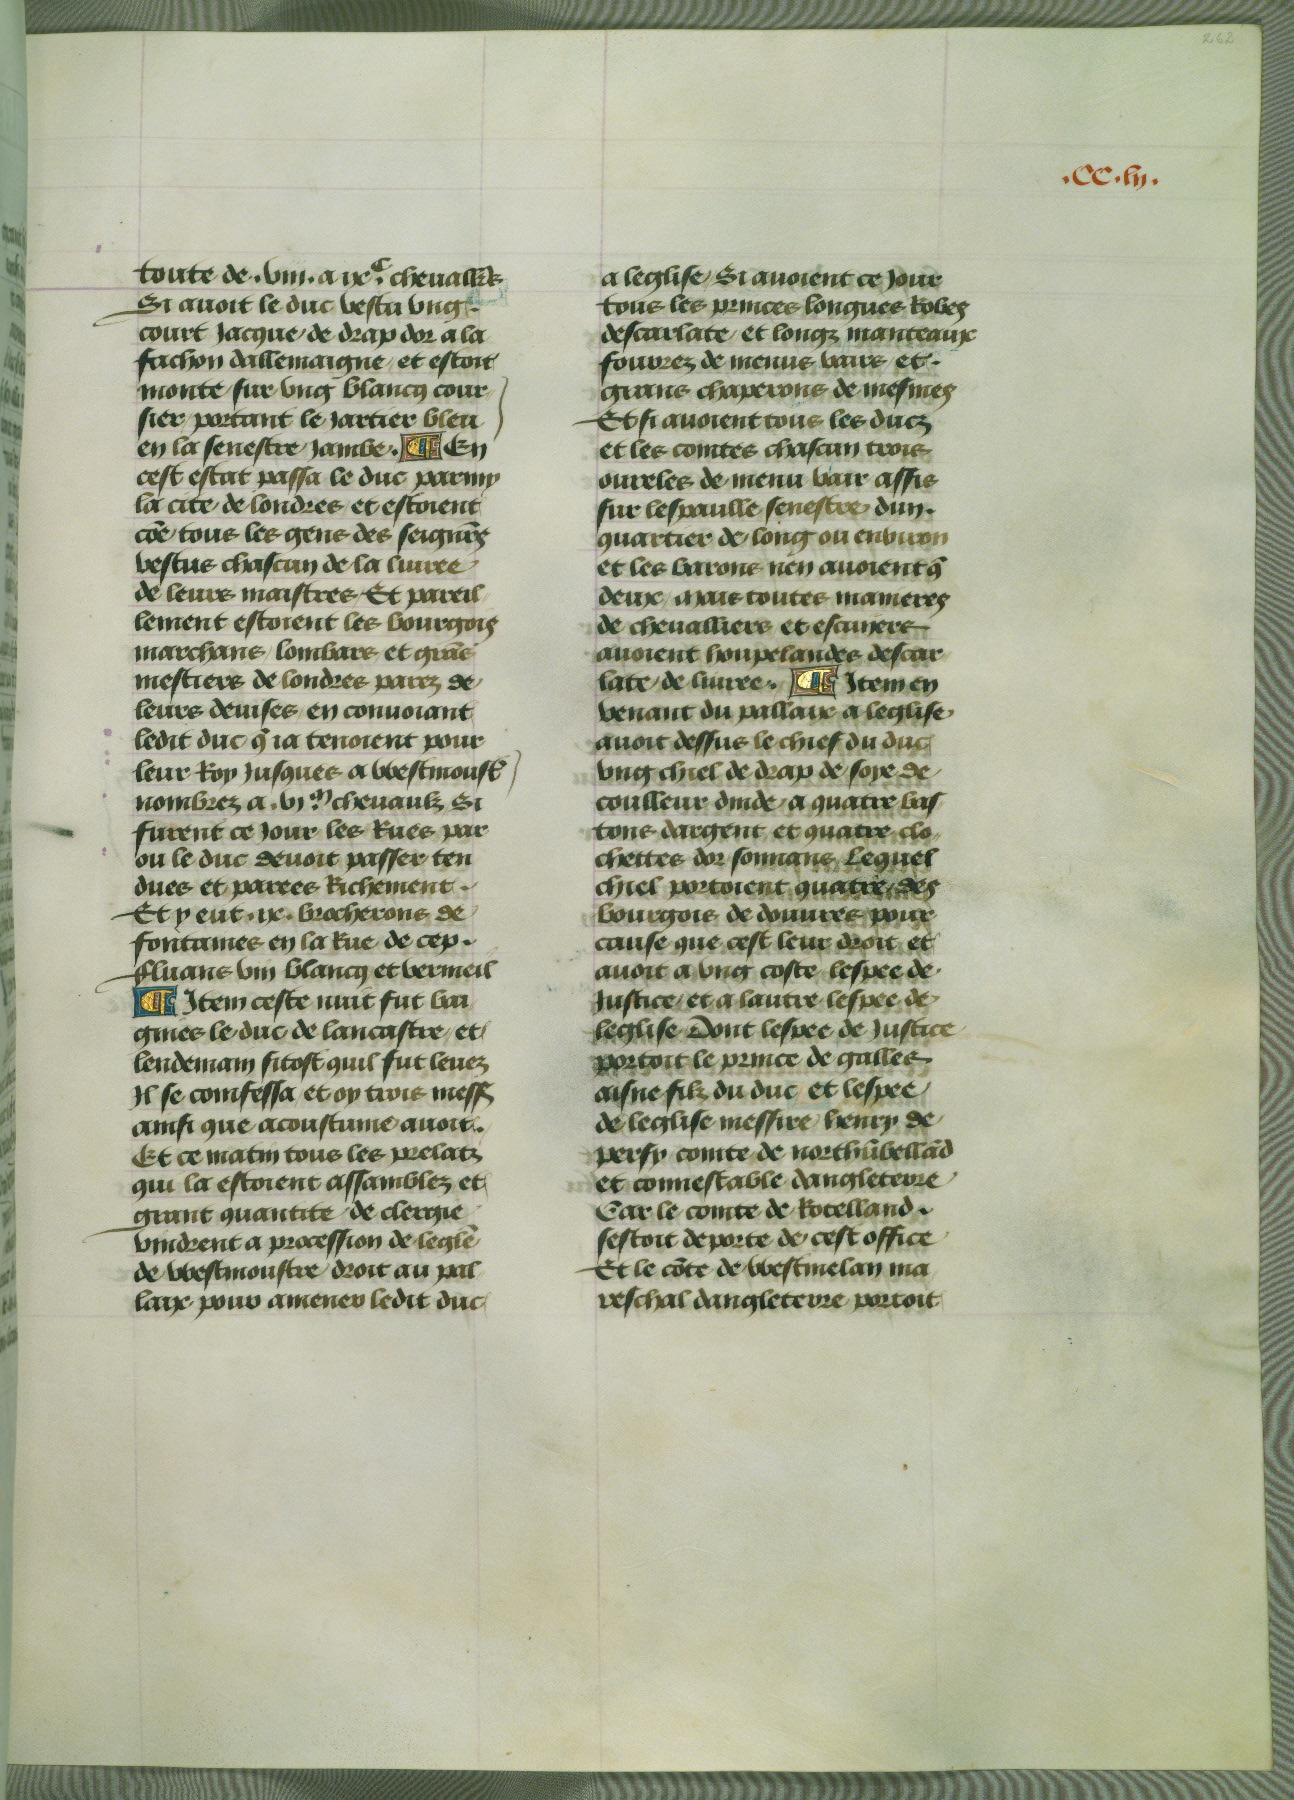 262
.CC.lii.
toute de .viii. a ixᶜ. chevallrs
Si avoit le duc vestu ung.
court Jacque de drap dor a la
fachon dallemaigne et estoit
monte sur ung blancq cour
sier portant le Jartier bleu
en la senestre Jambe. ¶ En
cest estat passa le duc parmy
la cite de londres et estoient
cōe tous les gens des seignrs̄
vestus chascun de la livree
de leurs maistres Et pareil
lement estoient les bourgois
marchans lombars et grās
mestiers de londres parez de
leurs devises en convoiant
ledit duc q̄ ia tenoient pour
leur Roy Jusques a Westmoust̄
nombrez a .vi.ᵐ chevaulz Si
furent ce Jour les Rues par
ou le duc devoit passer ten
dues et parees Richement.
Et y eut .ix. brocherons de
fontaines en la Rue de cep.
fluans vin blancq et vermeil
¶ Item ceste nuit fut bai
gnies le duc de lancastre et
lendemain sitost quil fut levez
Il se comfessa et oy trois mess̄
ainsi que acoustume avoit.
Et ce matin tous les prelatz
qui la estoient assamblez et
grant quantite de clergie
vindrent a procession de leglē
de Westmoustre droit au pal
laix pour amener ledit duc
a leglise Si avoient ce Jour
tous les princes longues Robes
descarlate et longz manteaux
fourrez de menus vairs et.
grans chaperons de mesmes
Et si avoient tous les ducz
et les comtes chascun trois
oureles de menu vair assis
sur lespaulle senestre dun.
quartier de long ou environ
et les barons nen avoient q̄
deux mais toutes manieres
de chevalliers et escuiers
avoient houpelandes descar
late de livree. ¶ Item en
venant du pallaix a leglise
avoit dessus le chief du duc
ung chiel de drap de soye de
coulleur dinde a quatre bas
tons dargent et quatre clo
chettes dor sonnans Lequel
chiel portoient quatre des
bourgois de douvres pour
cause que cest leur droit et
avoit a ung coste lespee de
Justice et a lautre lespee de
leglise Dont lespee de Justice
portoit le prince de galles
aisne filz du duc et lespee
de leglise messire henry de
persy comte de northūbellād
et connestable dangleterre
Car le comte de Rotelland.
sestoit deporte de cest office
Et le cōte de Westmelan ma
reschal dangleterre portoit